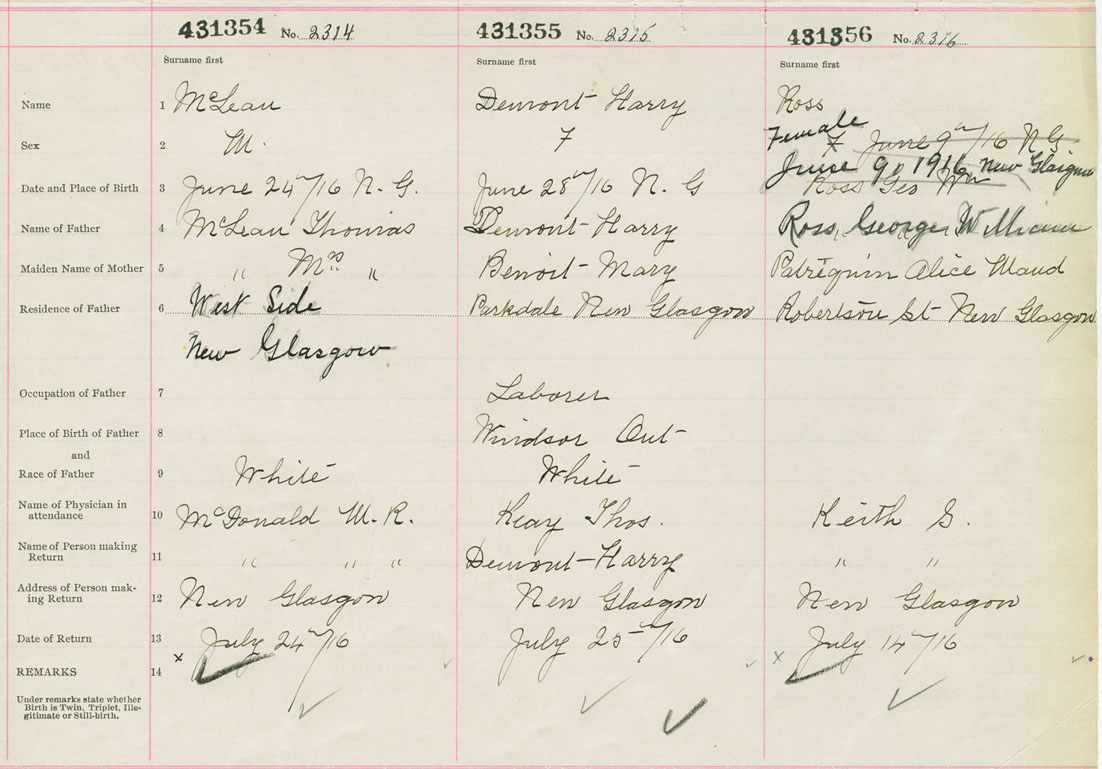 431354 No. 2314 431355 No. 2315 431356 No. 2316
Surname first Surname first Surname first
Name 1 McLean Demont Harry Ross
Female
Sex 2 M. F F June 9th/16 N G.
June 9, 1916 New Glasgow
Date and Place of Birth 3 June 24th/16 N. G. June 28th/16 N. G Ross Geo Wm
Name of Father 4 McLean Thomas Demont Harry Ross, George William
Maiden Name of Mother 5 " Mrs " Benoit Mary Patriquin Alice Maud
Residence of Father 6 West Side Parkdale New Glasgow Robertson St New Glasgow
New Glasgow
Occupation of Father 7 Laborer
Place of Birth of Father 8 Windsor Ont
and
Race of Father 9 White White
Name of Physician in
attendance 10 McDonald M. R. Keay Thos. Keith G.
Name of Person making
Return 11 " " " Demont Harry " "
Address of Person mak-
ing Return 12 New Glasgow New Glasgow New Glasgow
Date of Return 13 July 24th/16 July 25th/16 July 14th/16
x x
REMARKS 14
Under remarks state whether
Birth is Twin, Triplet, Ille-
gitimate or Still-birth.